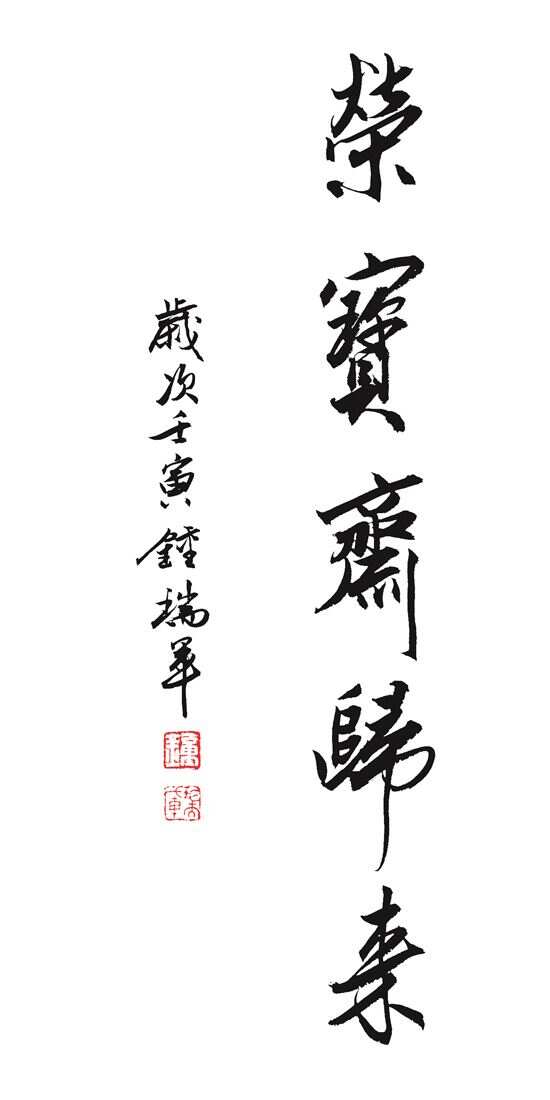 榮寶齋歸來
歲次壬寅鍾瑞軍